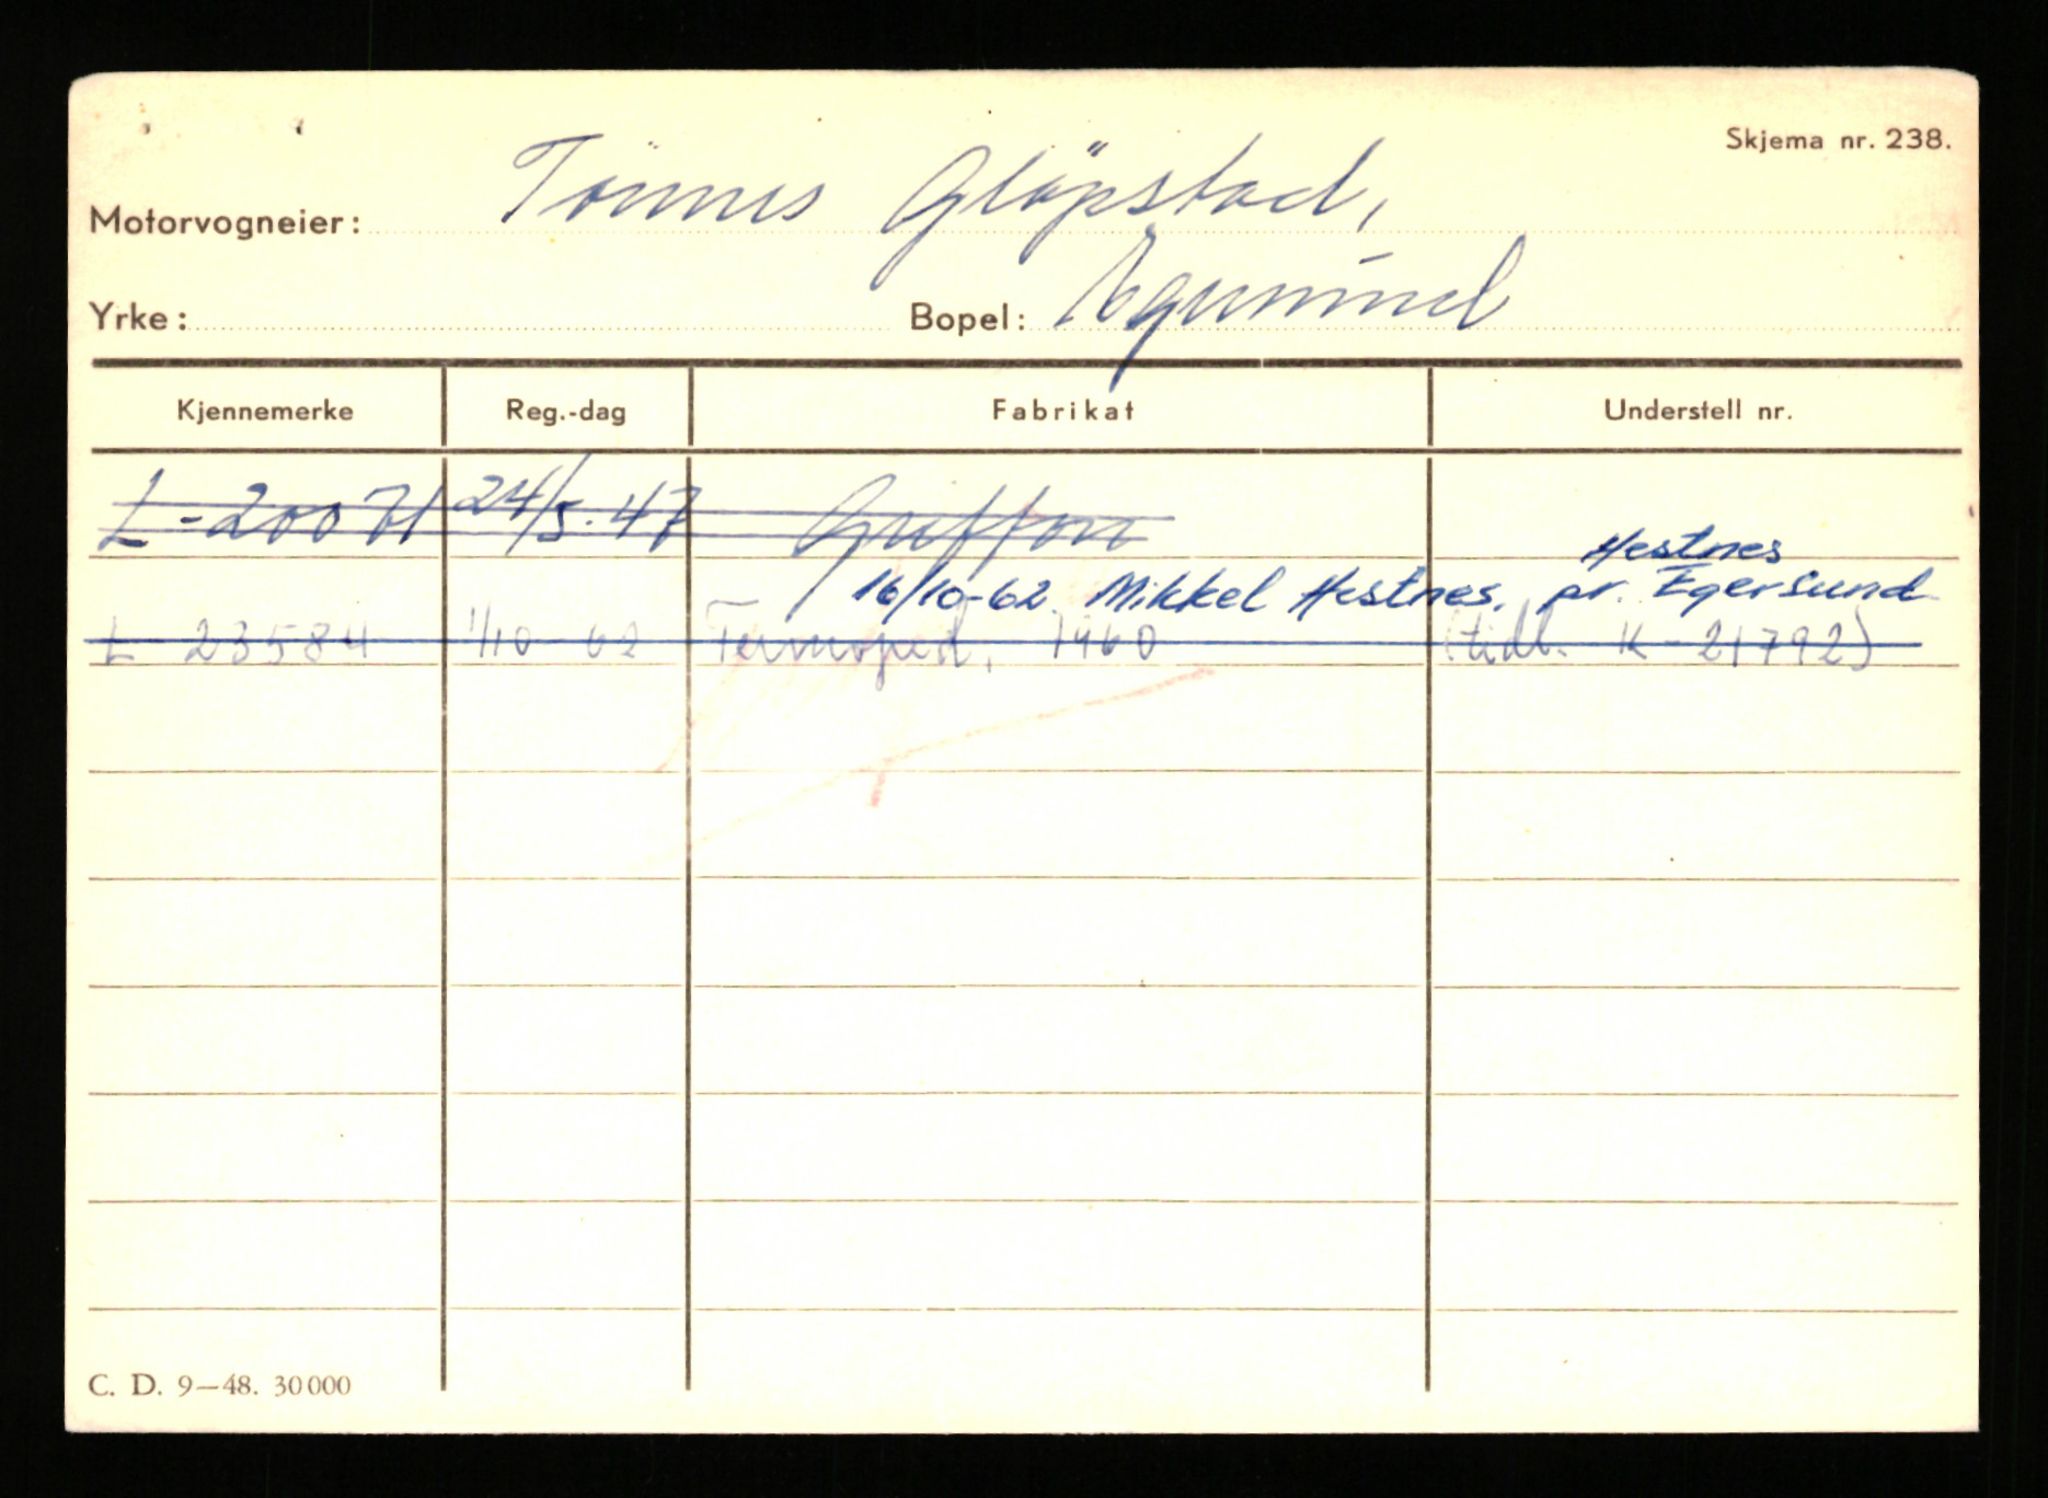 Skjema nr. 238.
Motorvogneier: Tönnes Glöpstad,
Yrke: Bopel: Egersund
Kjennemerke Reg.-dag Fabrikat Understell nr.
L-20071 24/5.47 Griffon
Hestnes
16/10-62 Mikkel Hestnes, pr. Egersund
L 23584 1/10 62 1960 (tidl. K-21792)
C. D. 9—48. 30000